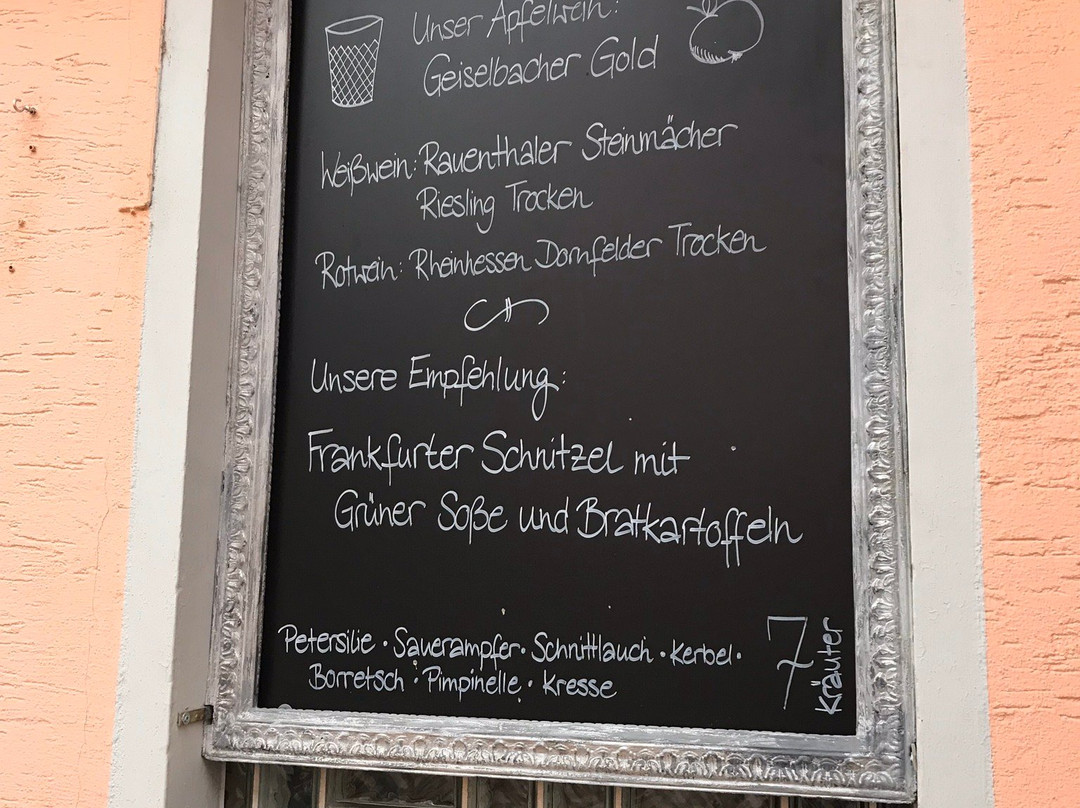 Unser Apfelwein:
Geiselbacher Gold
Weißwein: Rauenthaler Steinmächer
Riesling Trocken
Rotwein: Rheinhessen Dornfelder Trocken
Unsere Empfehlung:
Frankfurter Schnitzel mit
Grüner Soße und Bratkartoffeln
Petersilie · Sauerampfer · Schnittlauch · Kerbel ·
Borretsch · Pimpinelle · Kresse
7 Kräuter